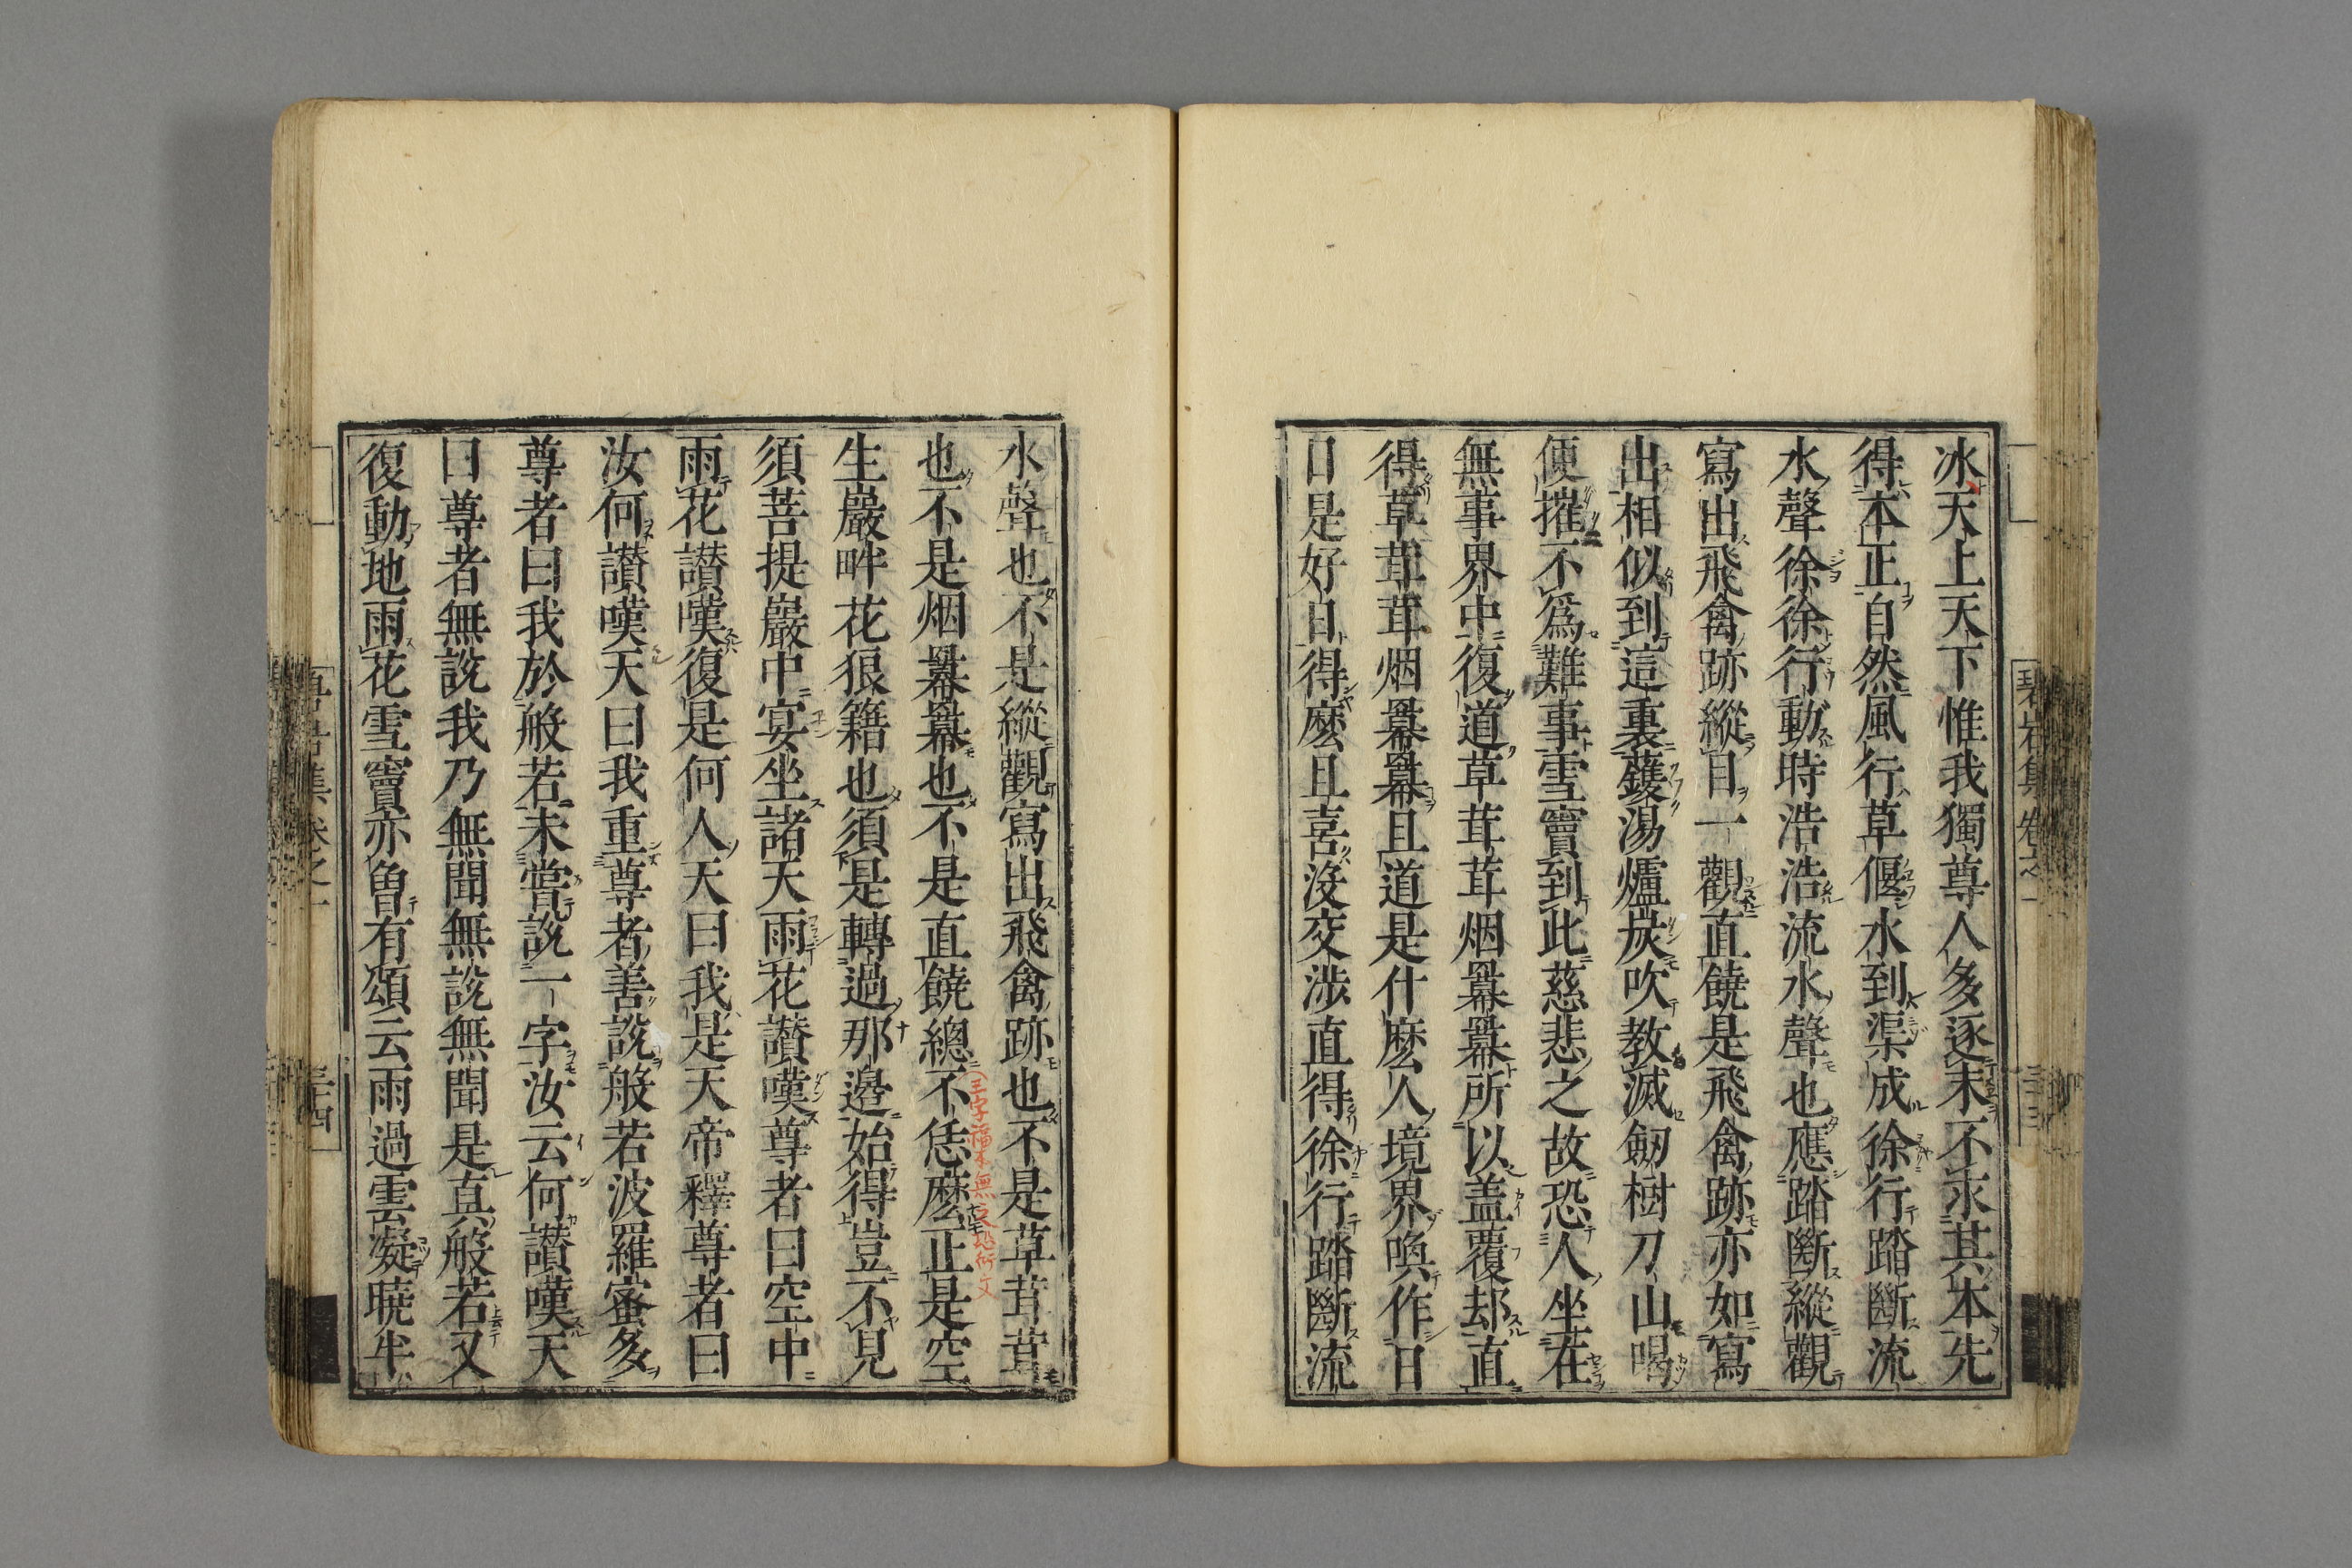 氷天上天下惟我獨尊人多逐末不求其本先
得本正自然風行草偃水到渠成徐行踏斷流
水聲徐徐行動時浩浩流水聲也應踏斷縱觀
寫出飛禽跡縱目一觀直饒是飛禽跡亦如寫
出相似到這裏鑊湯爐炭吹教滅劔樹刀山喝
便摧不爲難事雪竇到此慈悲之故恐人坐在
無事界中復道草茸茸烟羃羃所以盖覆却直
得草茸茸烟羃羃且道是什麽人境界喚作日
日是好日得麽且喜沒交渉直得徐行踏斷流
碧岩集卷之一
三十三
水聲也不是縱觀寫出飛禽跡也不是草茸茸
也不是烟羃羃也不是直饒總不恁麽正是空
生巖畔花狼籍也須是轉過那邉始得豈不見
須菩提巖中宴坐諸天雨花讃嘆尊者曰空中
雨花讃嘆復是何人天曰我是天帝釋尊者曰
汝何讃嘆天曰我重尊者善說般若波羅蜜多
尊者曰我於般若未嘗說一字汝云何讃嘆天
曰尊者無說我乃無聞無說無聞是真般若又
復動地雨花雪竇亦曽有頌云雨過雲凝曉半
三十四